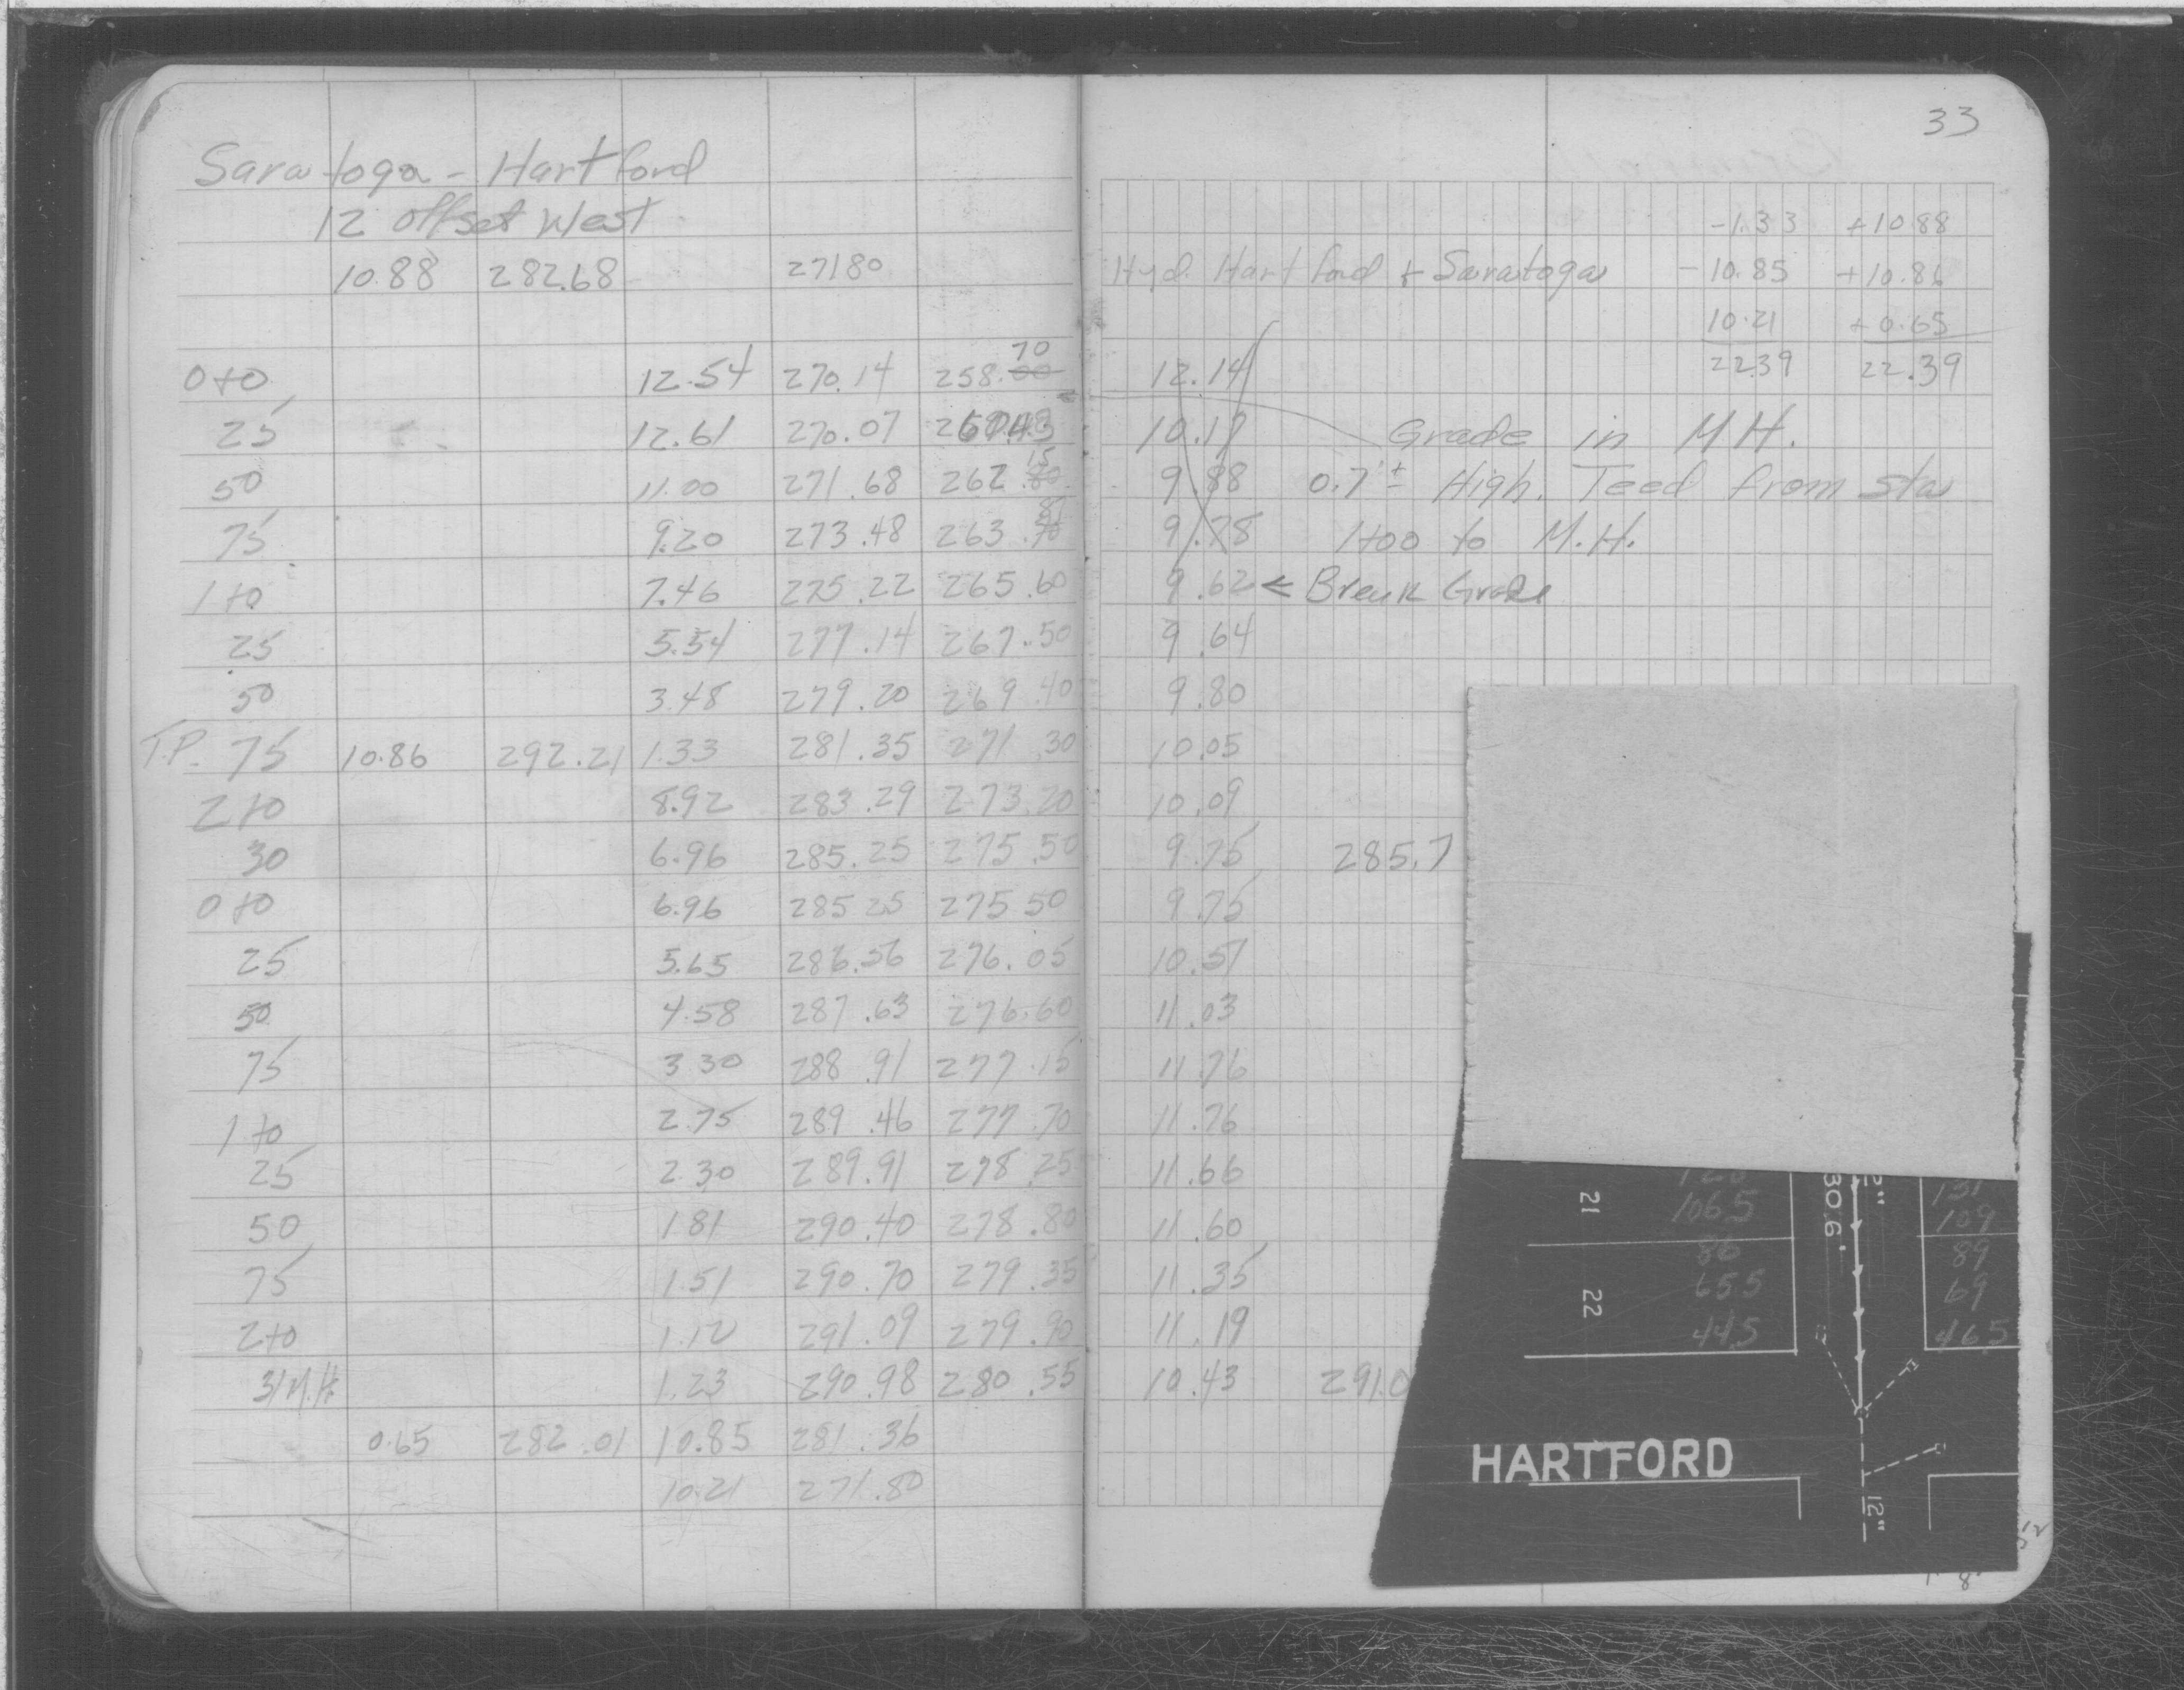 33
Saratoga - Hartford
12 offset West
10.88 282.68 271.80 Hyd. Hartford + Saratoga
-1.33 +10.88
-10.85 +10.86
10.21 +0.65
22.39 22.39
0+0 12.54 270.14 258.00 70 12.14
25 12.61 270.07 10.19 Grade in M H.
50 11.00 271.68 262.80 15 9.88 0.7'± High. Teed from sta
75 9.20 273.48 263.70 9.78 1+00 to M.H.
1+0 7.46 275.22 265.60 9.62 < Break Grade
25 5.54 277.14 267.50 9.64
50 3.48 279.20 269.40 9.80
T.P. 75 10.86 292.21 1.33 281.35 271.30 10.05
2+0 8.92 283.29 273.20 10.09
30 6.96 285.25 275.50 9.75 285.7
0+0 6.96 285.25 275.50 9.75
25 5.65 286.56 276.05 10.51
50 4.58 287.63 276.60 11.03
75 3.30 288.91 277.15 11.76
1+0 2.75 289.46 277.70 11.76
25 2.30 289.91 278.25 11.66
50 1.81 290.40 278.80 11.60
75 1.51 290.70 279.35 11.35
2+0 1.12 291.09 279.90 11.19
31 M.H. 1.23 290.98 280.55 10.43 291.0
0.65 282.01 10.85 281.36
10.21 271.80
21 106.5 30.6' 2" 131
109
86 89
22 65.5 69
44.5 46.5
HARTFORD
12"